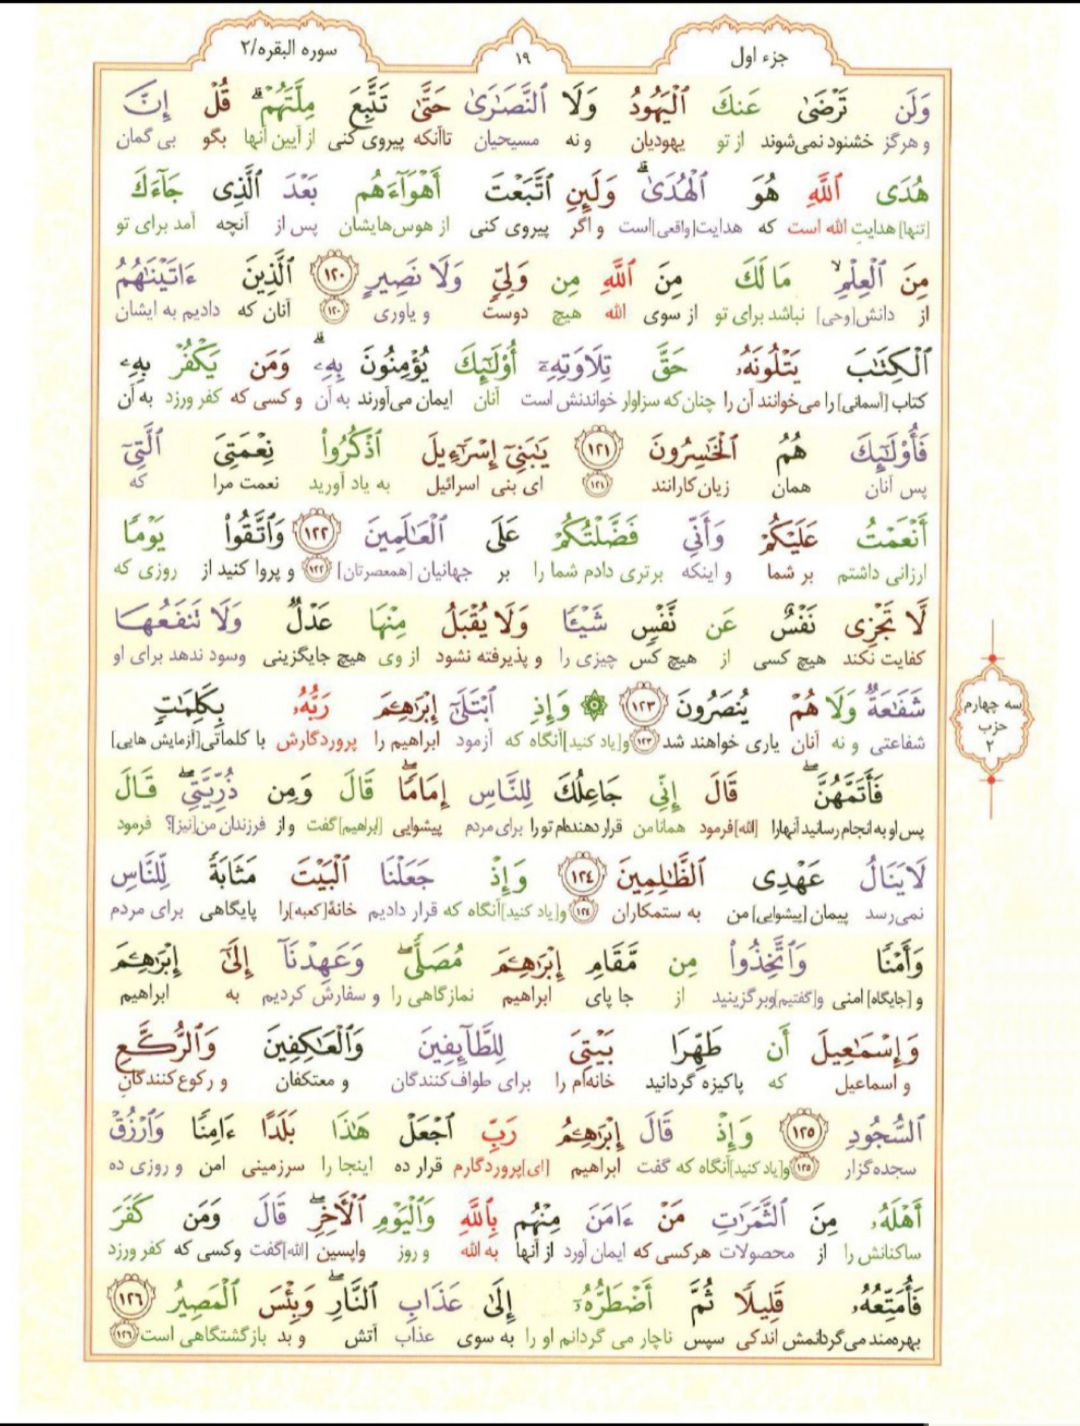 جزء اول
۱۹
سوره البقره/۲
وَلَن تَرْضَىٰ عَنكَ ٱلْيَهُودُ وَلَا ٱلنَّصَـٰرَىٰ حَتَّىٰ تَتَّبِعَ مِلَّتَهُمْ ۗ قُلْ إِنَّ
و هرگز خشنود نمی‌شوند از تو یهودیان و نه مسیحیان تاآنکه پیروی کنی از آیین آنها بگو بی گمان
هُدَى ٱللَّهِ هُوَ ٱلْهُدَىٰ ۗ وَلَئِنِ ٱتَّبَعْتَ أَهْوَآءَهُم بَعْدَ ٱلَّذِى جَآءَكَ
[تنها] هدایتِ الله است که هدایت[واقعی]است و اگر پیروی کنی از هوس‌هایشان پس از آنچه آمد برای تو
مِنَ ٱلْعِلْمِ ۙ مَا لَكَ مِنَ ٱللَّهِ مِن وَلِىٍّ وَلَا نَصِيرٍ ۱۲۰ ٱلَّذِينَ ءَاتَيْنَـٰهُمُ
از دانش[وحی] نباشد برای تو از سوی الله هیچ دوست و یاوری ۱۲۰ آنان که دادیم به ایشان
ٱلْكِتَـٰبَ يَتْلُونَهُۥ حَقَّ تِلَاوَتِهِۦٓ أُو۟لَـٰٓئِكَ يُؤْمِنُونَ بِهِۦ ۗ وَمَن يَكْفُرْ بِهِۦ
کتاب [آسمانی] را می‌خوانند آن را چنان‌که سزاوار خواندنش است آنان ایمان می‌آورند به آن و کسی که کفر ورزد به آن
فَأُو۟لَـٰٓئِكَ هُمُ ٱلْخَـٰسِرُونَ ۱۲۱ يَـٰبَنِىٓ إِسْرَٰٓءِيلَ ٱذْكُرُوا۟ نِعْمَتِىَ ٱلَّتِىٓ
پس آنان همان زیان‌کارانند ۱۲۱ ای بنی اسرائیل به یاد آورید نعمت مرا که
أَنْعَمْتُ عَلَيْكُمْ وَأَنِّى فَضَّلْتُكُمْ عَلَى ٱلْعَـٰلَمِينَ ۱۲۲ وَٱتَّقُوا۟ يَوْمًا
ارزانی داشتم بر شما و اینکه برتری دادم شما را بر جهانیان [همعصرتان] ۱۲۲ و پروا کنید از روزی که
لَّا تَجْزِى نَفْسٌ عَن نَّفْسٍ شَيْـًٔا وَلَا يُقْبَلُ مِنْهَا عَدْلٌ وَلَا تَنفَعُهَا
کفایت نکند هیچ کسی از هیچ کس چیزی را و پذیرفته نشود از وی هیچ جایگزینی وسود ندهد برای او
شَفَـٰعَةٌ وَلَا هُمْ يُنصَرُونَ ۱۲۳ ۞ وَإِذِ ٱبْتَلَىٰٓ إِبْرَٰهِـۧمَ رَبُّهُۥ بِكَلِمَـٰتٍ
شفاعتی و نه آنان یاری خواهند شد ۱۲۳ و[یاد کنید]آنگاه که آزمود ابراهیم را پروردگارش با کلماتی[آزمایش هایی]
سه چهارم
حزب
۲
فَأَتَمَّهُنَّ ۖ قَالَ إِنِّى جَاعِلُكَ لِلنَّاسِ إِمَامًا ۖ قَالَ وَمِن ذُرِّيَّتِى ۖ قَالَ
پس او به انجام رسانید آنهارا [الله]فرمود همانا من قرار دهنده‌ام تو را برای مردم پیشوایی [ابراهیم]گفت و از فرزندان من[نیز]؟ فرمود
لَا يَنَالُ عَهْدِى ٱلظَّـٰلِمِينَ ۱۲۴ وَإِذْ جَعَلْنَا ٱلْبَيْتَ مَثَابَةً لِّلنَّاسِ
نمی‌رسد پیمان [پیشوایی] من به ستمکاران ۱۲۴ و[یاد کنید]آنگاه که قرار دادیم خانهٔ[کعبه]را پایگاهی برای مردم
وَأَمْنًا وَٱتَّخِذُوا۟ مِن مَّقَامِ إِبْرَٰهِـۧمَ مُصَلًّى ۖ وَعَهِدْنَآ إِلَىٰٓ إِبْرَٰهِـۧمَ
و [جایگاه] امنی و[گفتیم]وبرگزینید از جا پای ابراهیم نمازگاهی را و سفارش کردیم به ابراهیم
وَإِسْمَـٰعِيلَ أَن طَهِّرَا بَيْتِىَ لِلطَّآئِفِينَ وَٱلْعَـٰكِفِينَ وَٱلرُّكَّعِ
و اسماعیل که پاکیزه گردانید خانه‌ام را برای طواف‌کنندگان و معتکفان و رکوع‌کنندگانِ
ٱلسُّجُودِ ۱۲۵ وَإِذْ قَالَ إِبْرَٰهِـۧمُ رَبِّ ٱجْعَلْ هَـٰذَا بَلَدًا ءَامِنًا وَٱرْزُقْ
سجده‌گزار ۱۲۵ و[یاد کنید]آنگاه که گفت ابراهیم [ای]پروردگارم قرار ده اینجا را سرزمینی امن و روزی ده
أَهْلَهُۥ مِنَ ٱلثَّمَرَٰتِ مَنْ ءَامَنَ مِنْهُم بِٱللَّهِ وَٱلْيَوْمِ ٱلْـَٔاخِرِ ۖ قَالَ وَمَن كَفَرَ
ساکنانش را از محصولات هرکسی که ایمان آورد از آنها به الله و روز واپسین [الله]گفت وکسی که کفر ورزد
فَأُمَتِّعُهُۥ قَلِيلًا ثُمَّ أَضْطَرُّهُۥٓ إِلَىٰ عَذَابِ ٱلنَّارِ ۖ وَبِئْسَ ٱلْمَصِيرُ ۱۲۶
بهره‌مند می‌گردانمش اندکی سپس ناچار می گردانم او را به سوی عذاب آتش و بد بازگشتگاهی است ۱۲۶